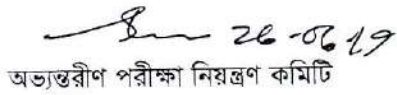 26-06-19
অভ্যন্তরীণ পরীক্ষা নিয়ন্ত্রণ কমিটি